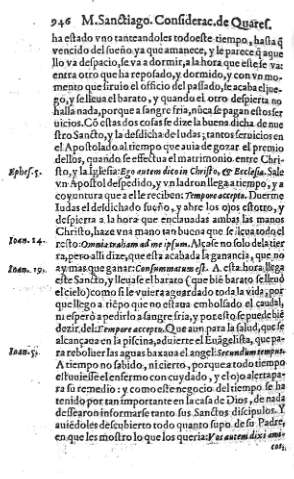 946 M. Sanctiago. Considerac. de Quares.
ha estado vno tanteandoles todo este tiempo, hasta q̃
vencido del sueño, ya que amanece, y le parece q̃ aque
llo va despacio, se va a dormir, a la hora que este se va:
entra otro que ha reposado, y dormido, y con vn mo-
mento que siruio el officio del passado, le acaba el jue-
go, y se lleua el barato, y quando el otro despierta no
halla nada, porque a sangre fria, nũca se pagan estos ser
uicios. Cõ estas dos cosas se dize la buena dicha de nue
stro Sancto, y la desdicha de Iudas; tantos seruicios en
el Apostolado, al tiempo que auia de gozar el premio
dellos, quando se effectua el matrimonio entre Chri-
Ephes. 5. sto, y la Iglesia: Ego autem dico in Christo, & Ecclesia. Sale
vn Apostol despedido, y vn ladron llega a tiempo, y a
coyuntura que a el le reciben: Tempore accepto. Duerme
Iudas el desdichado sueño, y abre los ojos estotro, y
despierta a la hora que enclauadas ambas las manos
Christo, haze vna mano tan buena que se lleua todo el
Ioan. 14. resto: Omnia traham ad me ipsum. Alcase no solo de la tier
ra, pero alli dize, que esta acabada la ganancia, que no
Ioan. 19. ay mas que ganar: Consummatum est. A esta hora llega
este Sancto, y lleuase el barato (que biẽ barato se lleuó
el cielo) como si le vuiera aguardado toda la vida, por
que llego a tiẽpo que no estaua embolsado el caudal,
ni esperò a pedirlo a sangre fria, y por esto se puede biẽ
dezir del: Tempore accepto. Que aun para la salud, que se
alcançaua en la piscina, aduierte el Euãgelista, que pa-
Ioan. 5. ra reboluer las aguas baxaua el angel: Secundum tempus.
A tiempo no sabido, ni cierto, porque a todo tiempo
estuuiesse el enfermo con cuydado, y el ojo alerta pa-
ra su remedio: y como este negocio del tiempo se ha
tenido por tan importante en la casa de Dios, de nada
dessearon informarse tanto sus Sanctos discipulos. Y
auiẽdoles descubierto todo quanto supo de su Padre,
en que les mostro lo que los queria: Vos autem dixi ami-
cos;